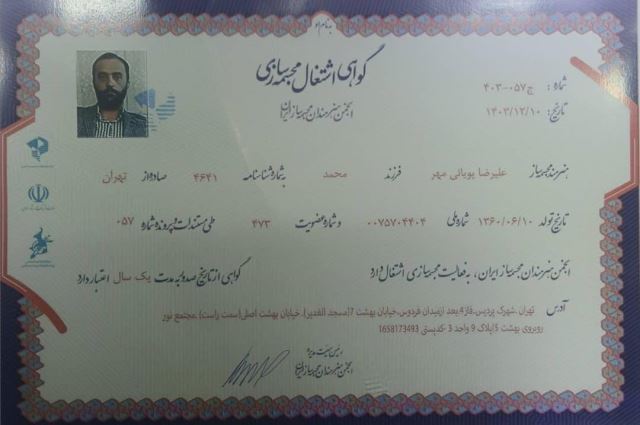 بنام او
گواهی اشتغال مجسمه سازی
انجمن هنرمندان مجسمه ساز ایران
شماره: ج۰۵۷-۴۰۳
تاریخ: ۱۴۰۳/۱۲/۱۰
هنرمند مجسمه ساز علیرضا پویائی مهر فرزند محمد به شماره شناسنامه ۴۶۴۱ صادره از تهران
تاریخ تولد ۱۳۶۰/۰۶/۱۰ شماره ملی ۰۰۷۵۷۰۴۴۰۴ و شماره عضویت ۴۷۳ طی مستندات پرونده شماره ۰۵۷
انجمن هنرمندان مجسمه ساز ایران، به فعالیت مجسمه سازی اشتغال دارد
گواهی از تاریخ صدور به مدت یک سال اعتبار دارد
آدرس تهران .شهرک پردیس.فاز4.بعد ازمیدان فردوس.خیابان بهشت 7(مسجد الغدیر). خیابان بهشت اصلی(سمت راست) .مجتمع نور
روبروی بهشت 5/پلاک 9 واحد 3 -کدپستی 1658173493
رئیس هیئت مدیره
انجمن هنرمندان مجسمه ساز ایران